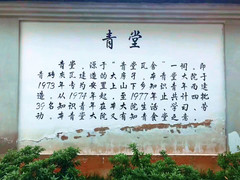 青堂
青堂，源于"青堂瓦舍"一词，即
青砖灰瓦建造的大房子。本青堂即
1973年为安置上山下乡知识青年而建
造。从1974年起，至1977年止共计四批
39名知识青年在大院生活、学习、劳
动。本青年大院又有知青食堂之意。